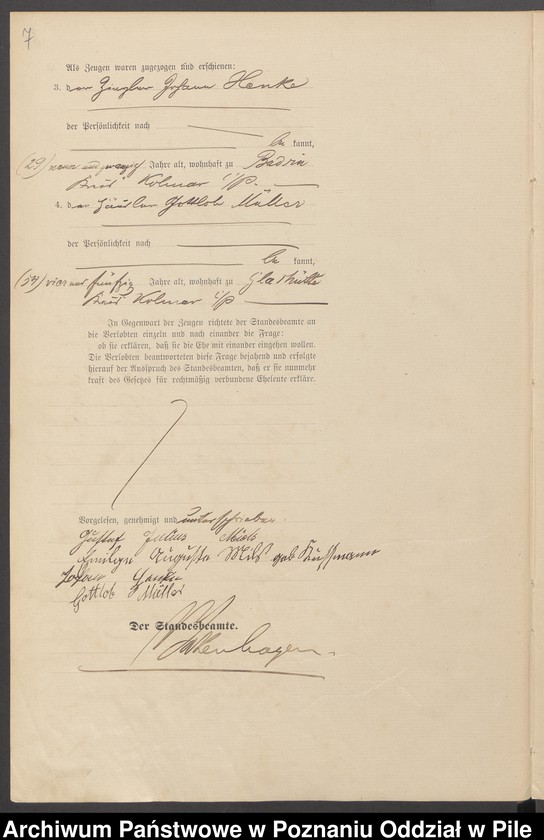 7
Als Zeugen waren zugezogen und erschienen:
3. der Ziegler Johann Henke
der Persönlichkeit nach
be kannt,
(29) neun und zwanzig Jahre alt, wohnhaft zu
Kreis Kolmar i/P.
4. der Häusler Gottlob Müller
der Persönlichkeit nach
be kannt,
(54) vier und fünfzig Jahre alt, wohnhaft zu Glashütte
Kreis Kolmar i/P
In Gegenwart der Zeugen richtete der Standesbeamte an
die Verlobten einzeln und nach einander die Frage:
ob sie erklären, daß sie die Ehe mit einander eingehen wollen.
Die Verlobten beantworteten diese Frage bejahend und erfolgte
hierauf der Ausspruch des Standesbeamten, daß er sie nunmehr
kraft des Gesetzes für rechtmäßig verbundene Eheleute erkläre.
Vorgelesen, genehmigt und unterschrieben
Gustaf Julius
Auguste geb
Johann Henke
Gottlob Müller
Der Standesbeamte.
Archiwum Państwowe w Poznaniu Oddział w Pile